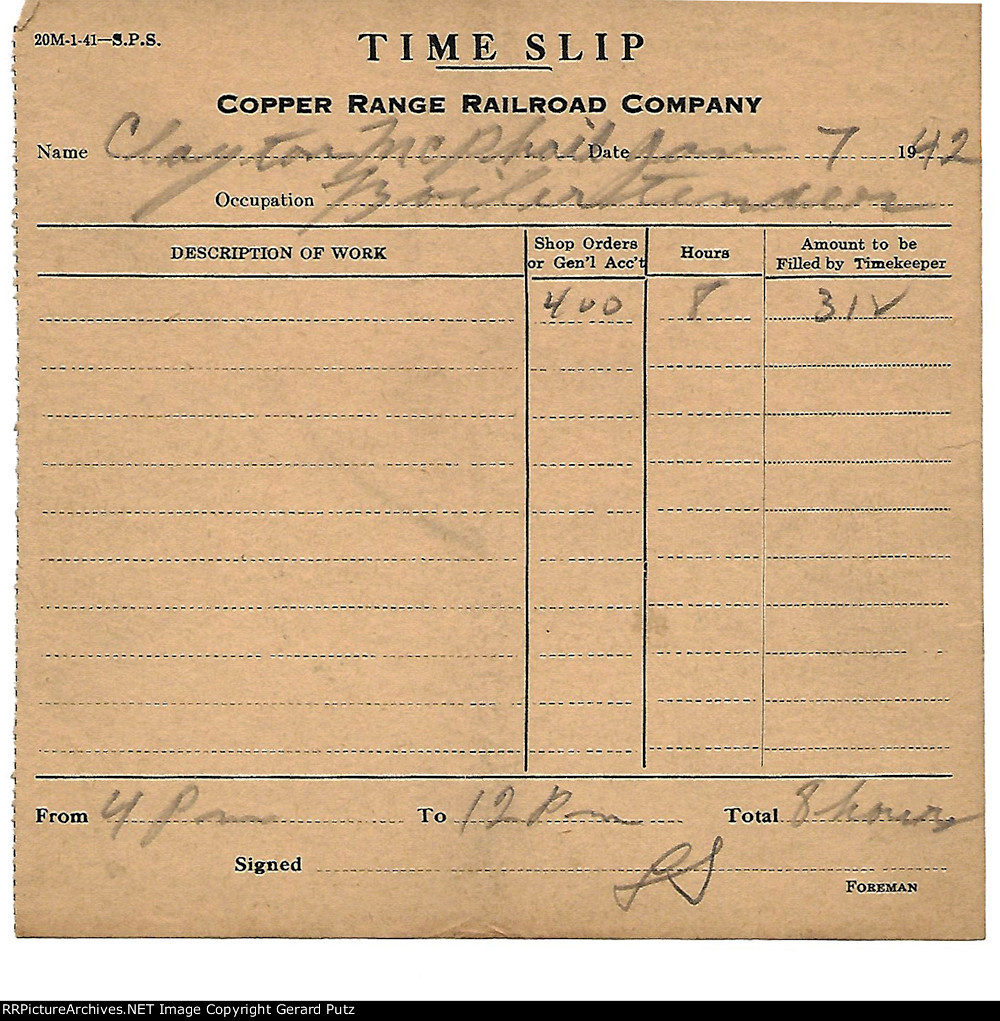 20M-1-41—S.P.S.
TIME SLIP
COPPER RANGE RAILROAD COMPANY
Name Clayton McPhail Date Jan 7 1942
Occupation Boiler tender
DESCRIPTION OF WORK Shop Orders or Gen'l Acc't Hours Amount to be Filled by Timekeeper
400 8 312
From 4 Pm To 12 Pm Total 8 hours
Signed
FOREMAN
RRPictureArchives.NET Image Copyright Gerard Putz